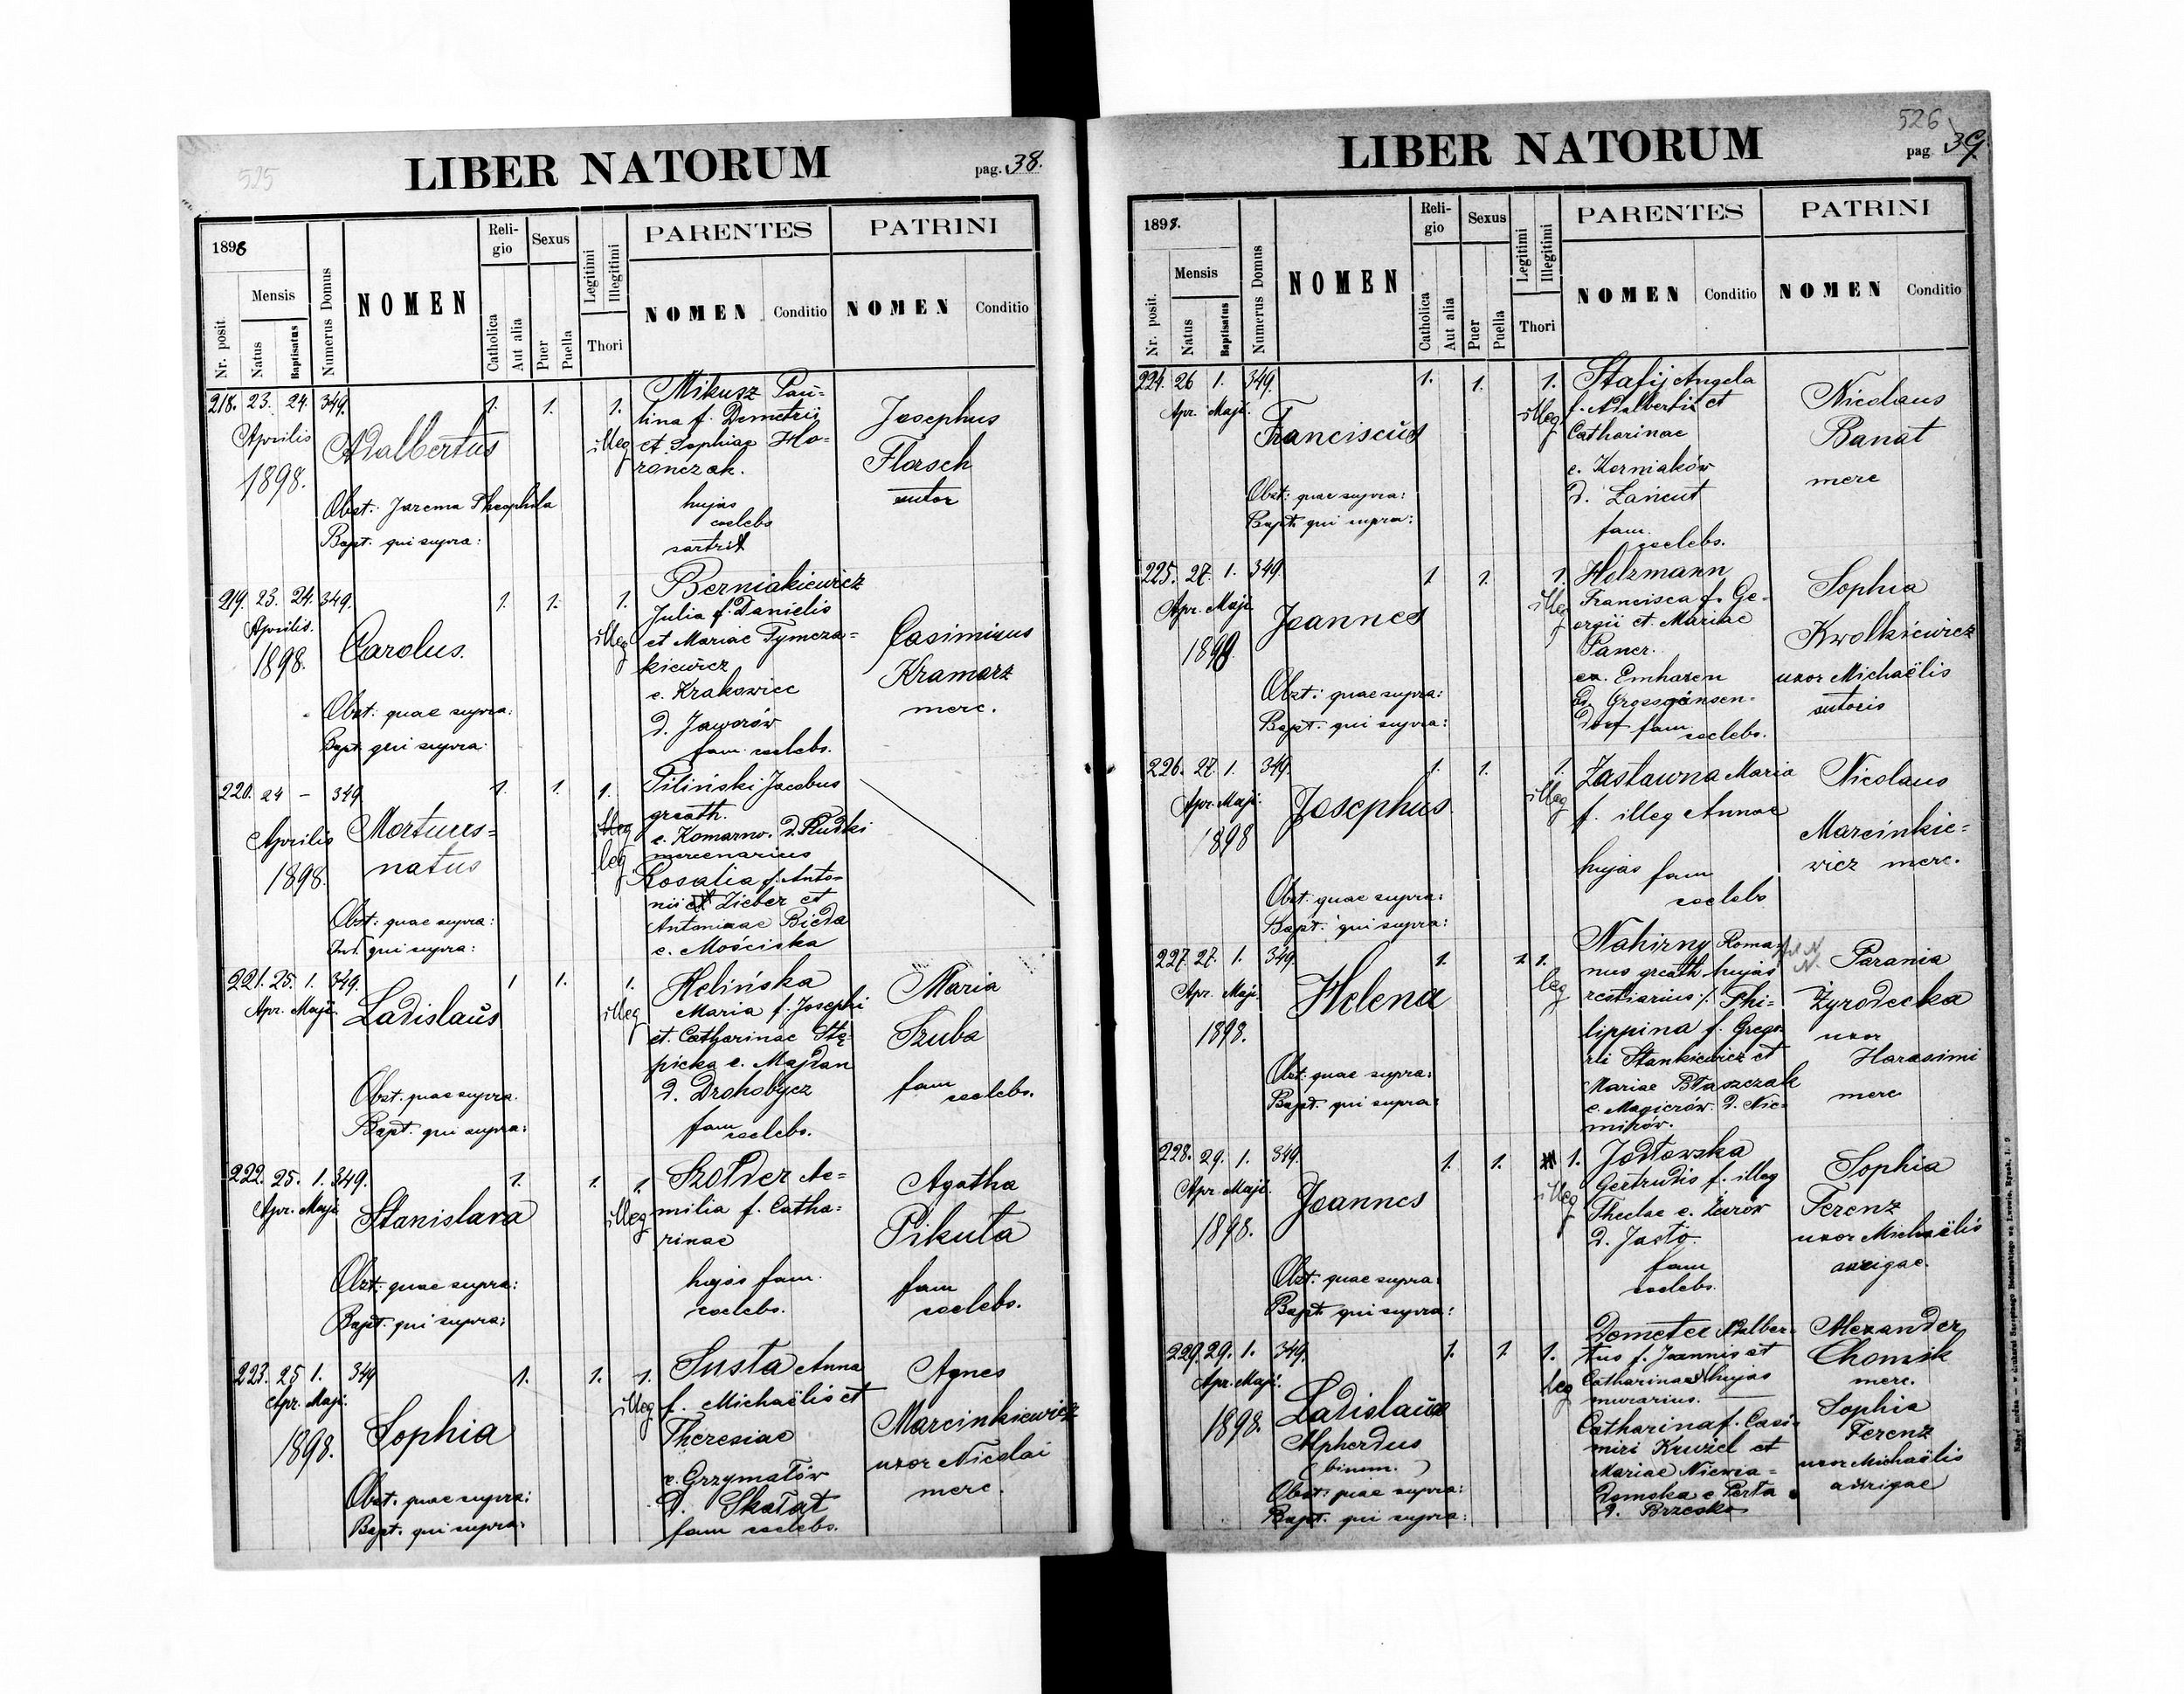 525
LIBER NATORUM
pag. 38.
1898
Nr. posit
Mensis
Natus
Baptisatus
Numerus Domus
NOMEN
Reli-
gio
Catholica
Aut alia
Sexus
Puer
Puella
Legitimi
Illegitimi
Thori
PARENTES
NOMEN
Conditio
PATRINI
NOMEN
Conditio
218. 23. 24. 349.
Aprilis
1898.
Adalbertus
1. 1. 1.
illeg
Obst. Jarema Theophila
Bapt. qui supra:
Mikusz Pau-
lina f. Demetrii
et Sophiae Ho-
ronczak.
hujas
coelebs
sartrix
Josephus
Florsch
sutor
219. 23. 24. 349.
Aprilis.
1898.
Carolus.
1. 1. 1.
illeg
Obst: quae supra:
Bapt. qui supra:
Berniakiewicz
Julia f. Danielis
et Mariae Tymcza-
kiewicz
e. Krakowiec
d. Jaworów
fam. coelebs.
Casimirus
Kramarz
merc.
220. 24 - 349
Aprilis
1898.
Mortuus-
natus
1. 1. 1.
illeg
leg
Obst: quae supra:
Ind. qui supra:
Piliński Jacobus
greath.
e. Komarno. d. Rudki
mercenarius
Rosalia f. Anto-
nii et Zieber et
Antoninae Bieda
e. Mościska
221. 25. 1. 349.
Apr. Maji.
Ladislaus
1 1. 1.
illeg
Obst. quae supra.
Bapt. qui supra:
Helińska
Maria f. Josephi
et. Catharinae Stę-
picka e. Majdan
d. Drohobycz
fam coelebs.
Maria
Szuba
fam coelebs.
222. 25. 1. 349.
Apr. Maji
Stanislava
1. 1. 1.
illeg
Obst: quae supra:
Bapt. qui supra:
Szolder Ae-
milia f. Catha-
rinae
hujas fam.
coelebs.
Agatha
Pikuta
fam
coelebs.
223. 25 1. 349
Apr. Maji.
1898.
Sophia
1. 1. 1.
illeg
Obst. quae supra:
Bapt. qui supra:
Susta Anna
f. Michaëlis et
Theresiae
e. Grzymałów
d. Skałat
fam coelebs.
Agnes
Marcinkiewicz
uxor Nicolai
merc.
526
LIBER NATORUM
pag 39.
1898.
Nr. posit.
Mensis
Natus
Baptisatus
Numerus Domus
NOMEN
Reli-
gio
Catholica
Aut alia
Sexus
Puer
Puella
Legitimi
Illegitimi
Thori
PARENTES
NOMEN
Conditio
PATRINI
NOMEN
Conditio
224. 26 1. 349.
Apr. Maji.
Franciscus
1. 1. 1.
illeg
Obst: quae supra:
Bapt: qui supra:
Stafij Angela
f. Adalberti et
Catharinae
e. Korniaków
d. Łańcut
fam.
coelebs.
Nicolaus
Banat
merc
225. 27. 1. 349.
Apr. Maji.
1898.
Joannes
1 1. 1.
illeg
Obst: quae supra:
Bapt: qui supra:
Holzmann
Francisca f. Ge-
orgii et. Mariae
Pancr.
ex. Emhoxen
fam
coelebs.
Sophia
Kwolkiewicz
uxor Michaëlis
sutoris
226. 27. 1. 349.
Apr. Maji.
1898
Josephus.
1. 1. 1.
illeg
Obst: quae supra:
Bapt. qui supra:
Zastawna Maria
f. illeg Annae
hujas fam
coelebs
Nicolaus
Marcinkie-
wicz merc.
227. 27. 1. 349.
Apr. Maji.
1898.
Helena
1. 1. 1.
leg
Obst: quae supra:
Bapt. qui supra:
Nahirny Roma-
nus greath. hujas
vestiarius ./. Phi-
lippina f. Grego-
rii Stankiewicz et
Mariae Błaszczak
e. Magierów. d. Nie-
mirów.
Parania
Żyrodecka
uxor
Harasimi
merc
228. 29. 1. 349.
Apr. Maji.
1898.
Joannes
1. 1. 1.
illeg
Obst: quae supra:
Bapt. qui supra:
Jodłowska
Gertrudis f. illeg
Theclae e. Żurow
d. Jasło.
fam
coelebs.
Sophia
Ferenz
uxor Michaëlis
aurigae.
229. 29. 1. 349.
Apr. Maji.
1898.
Ladislaus
Alpherdus
(binom.)
1. 1 1.
leg
Obst: quae supra:
Bapt. qui supra:
Demeter Adalber-
tus f. Joannis et
Catharinae hujas
murarius.
Catharina f. Casi-
miri Kruziel et
Mariae Niewia-
domska e Perła
d. Brzesko
Alexander
Chomik
merc.
Sophia
Ferenz
uxor Michaëlis
aurigae